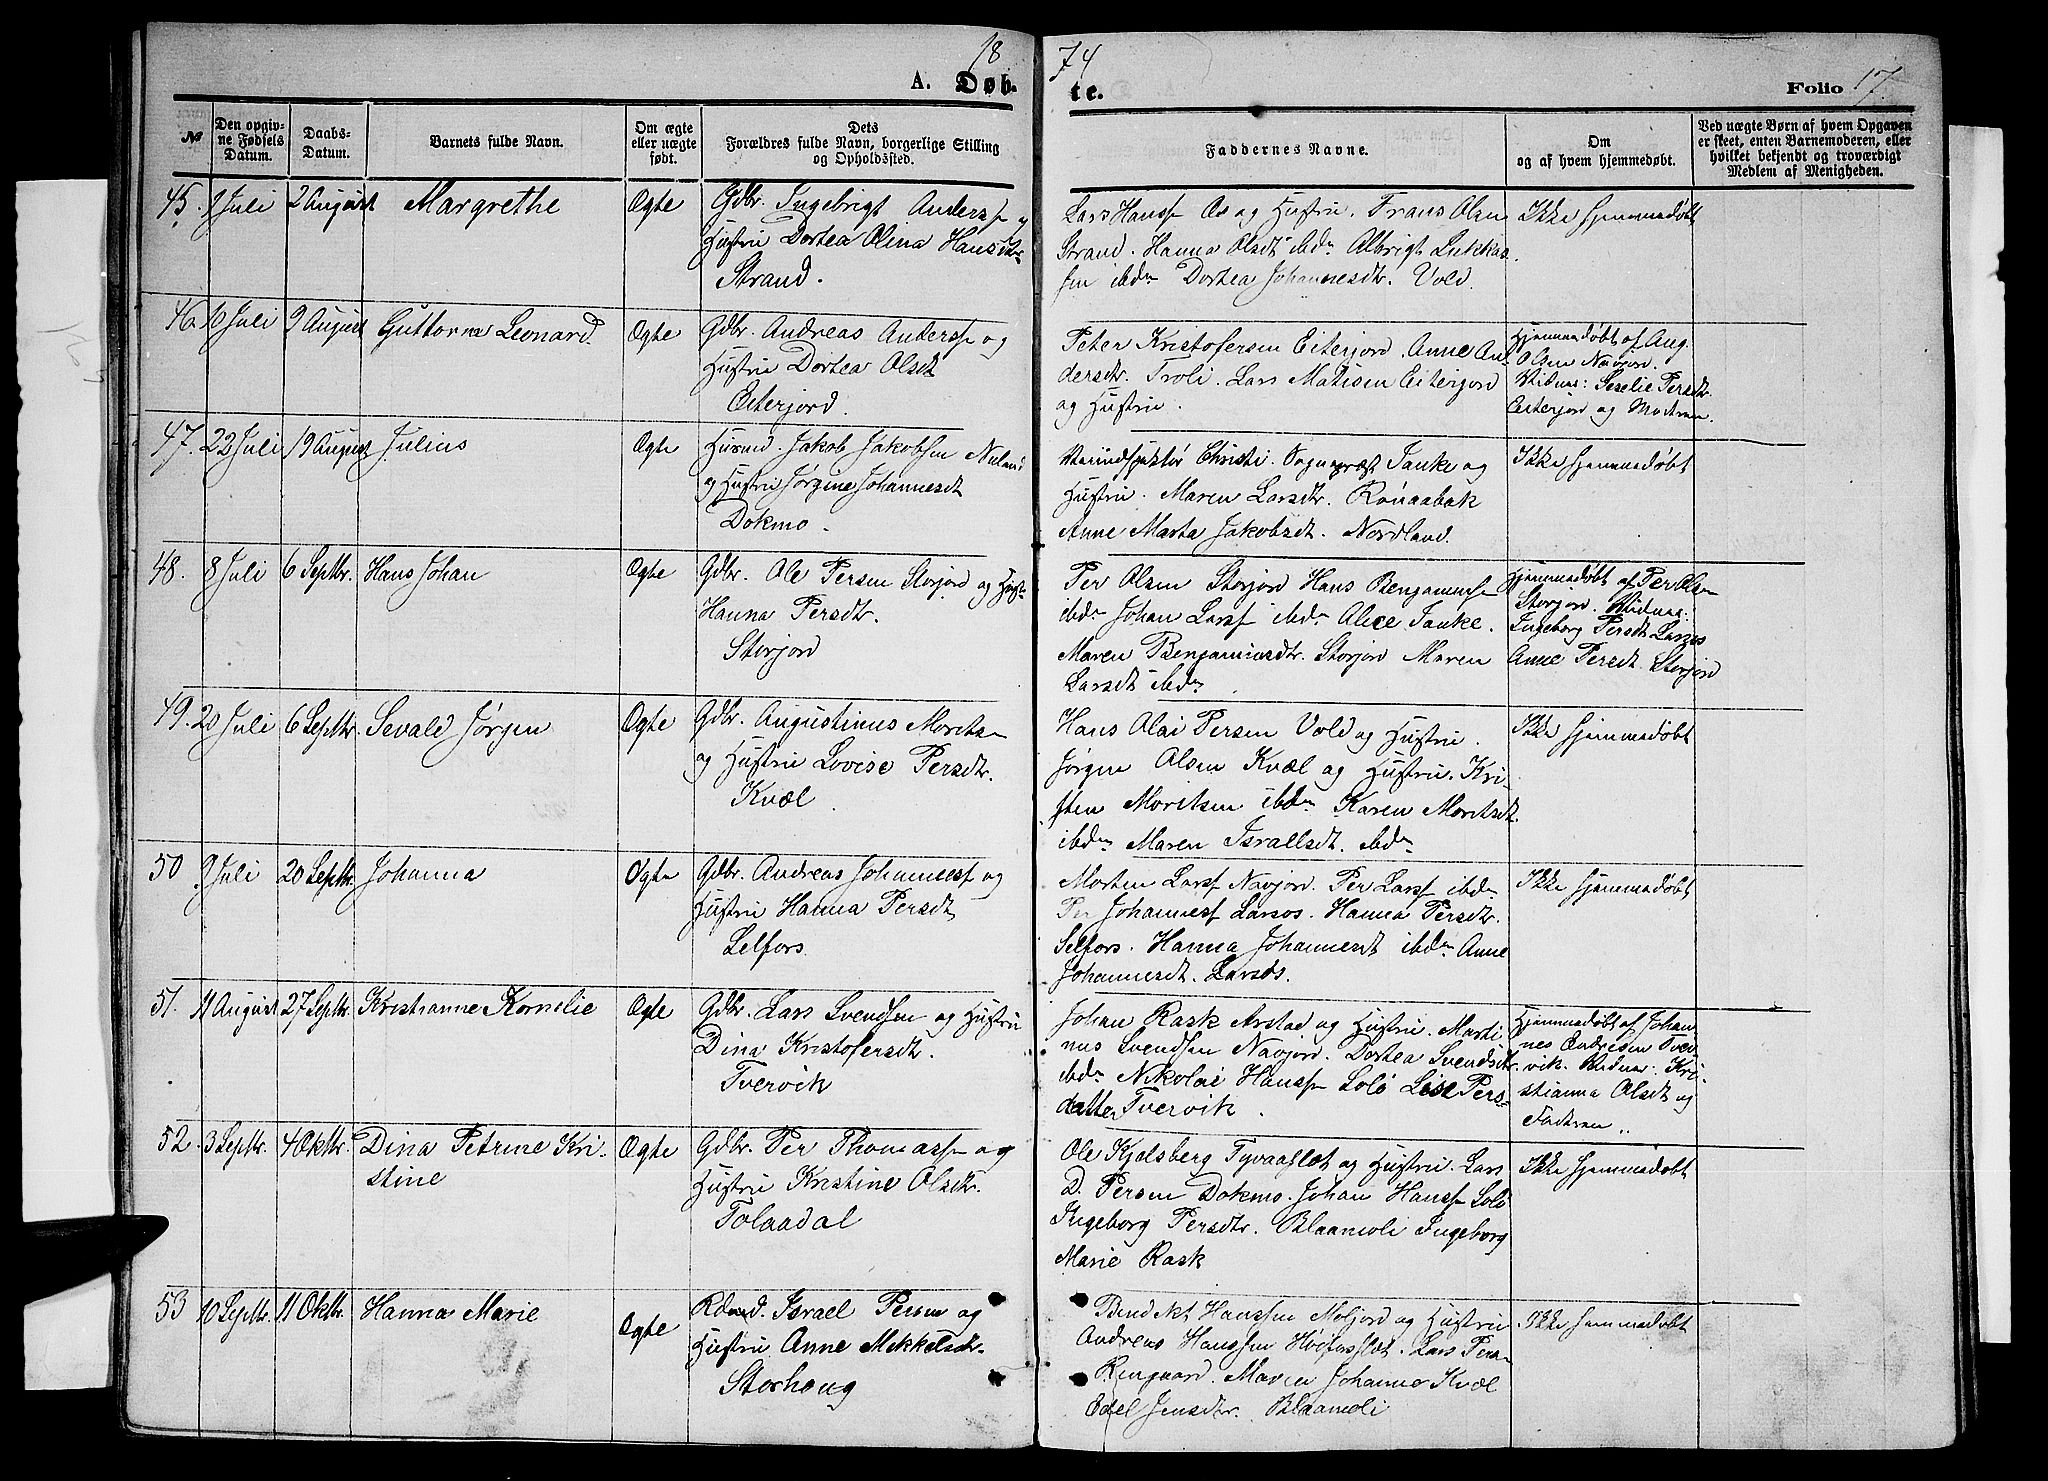 18 74
A. Døb-
te.
Folio 17
№
Den opgivne Fødsels Datum.
Daabs-Datum.
Barnets fulde Navn.
Om ægte eller uægte født.
Dets Forældres fulde Navn, borgerlige Stilling og Opholdssted.
Faddernes Navne.
Om og af hvem hjemmedøbt.
Ved uægte Børn af hvem Opgaven er skeet, enten Barnemoderen, eller hvilket bekjendt og troværdigt Medlem af Menigheden.
45. 9 Juli 2 August Margrethe Ægte Gdbr. Ingebrigt Anderss og
Hustru Dortea Olina Hansdtr
Strand.
Lars Hanss Os og Hustru. Frans Olsen
Strand. Hanna Olsdt ibdm Albrigt Lukkas-
sen ibdm Dortea Johannesdtr. Vold.
Ikke hjemmedøbt
46. 10 Juli 9 August Guttorm Leonard. Ægte Gdbr. Andreas Anderss og
Hustru Dortea Olsdt
Eiterjord.
Peter Kristofersen Eiterjord. Anne An-
dersdtr. Troli. Lars Matisen Eiterjord
og Hustru.
Hjemmedøbt af Aug.
Olsen Navjord.
Vidner: Seselie Persdt
Eiterjord og Modren.
47. 22 Juli 19 August Julius Ægte Husmd. Jakob Jakobsen Nuland
og Hustru Jørgine Johannesdt
Dokmo.
Christi. Sognepræst Tanke og
Hustru. Maren Larsdtr. Rönaabak
Anne Marta Jakobsdt. Nordland.
Ikke hjemmedøbt
48. 8 Juli 6 Septbr. Hans Johan Ægte Gdbr. Ole Persen Storjord og Hust
Hanna Persdtr.
Storjord
Per Olsen Storjord Hans Benjamins
ibdm Johan Larss ibdm Alice Tanke.
Maren Benjaminsdtr. Storjord Maren
Larsdt ibdm
Hjemmedøbt af Per Ols-
Storjord. Vidner:
Ingeborg Persdt Larsos
Anne Persdt. Storjord
49. 20 Juli 6 Septbr. Sevald Jørgen Ægte Gdbr. Augustinus Moritsen
og Hustru Lovise Persdtr.
Kvæl.
Hans Olai Persen Vold og Hustru.
Jørgen Olsen Kvæl og Hustru. Kri-
sten Moritsen ibdm Karen Moritsdt.
ibdm Maren Israelsdt. ibdm
Ikke hjemmedøbt
50 9 Juli 20 Septbr. Johanna Ægte Gdbr. Andreas Johanness og
Hustru Hanna Persdt
Selfors.
Morten Larss Navjord. Per Larss ibdm
Per Johanness Larsos. Hanna Persdtr.
Selfors. Hanna Johannesdt ibdm Anne
Johannesdt. Larsos.
Ikke hjemmedøbt
51. 11 August 27 Septbr. Kristianne Kornelie Ægte Gdbr. Lars Svendsen og Hustru
Dina Kristofersdt.
Tvervik
Johan Rask Arstad og Hustru. Marti-
nus Svendsen Navjord. Dortea Svendsdtr.
ibdm Nikolai Hanss Solö Lise Pers-
datter Tvervik.
Hjemmedøbt af Johan-
nes Andresen Tver-
vik. Vidner: Kri-
stianna Olsdt og
Fadren.
52. 3 Septbr. 4 Oktbr. Dina Petrine Kri-
stine Ægte Gdbr. Per Thomass og
Hustru Kristine Olsdtr.
Tolaadal
Ole Kjelsberg Tyvaaflot og Hustru. Lars
D. Persen Dokmo. Johan Hanss Solö
Ingeborg Persdtr. Blaamoli Ingeborg
Marie Rask
Ikke hjemmedøbt
53 10 Septbr. 11 Oktbr. Hanna Marie Ægte Israel Persen og
Hustru Anne Mikkelsdtr.
Storhoug
Bendikt Hanssen Moljord og Hustru
Andreas Hanssen Lars Pers-
Rengaard. Maren Johanne Kvæl
Edel Jensdtr. Blaamoli
Ikke hjemmedøbt